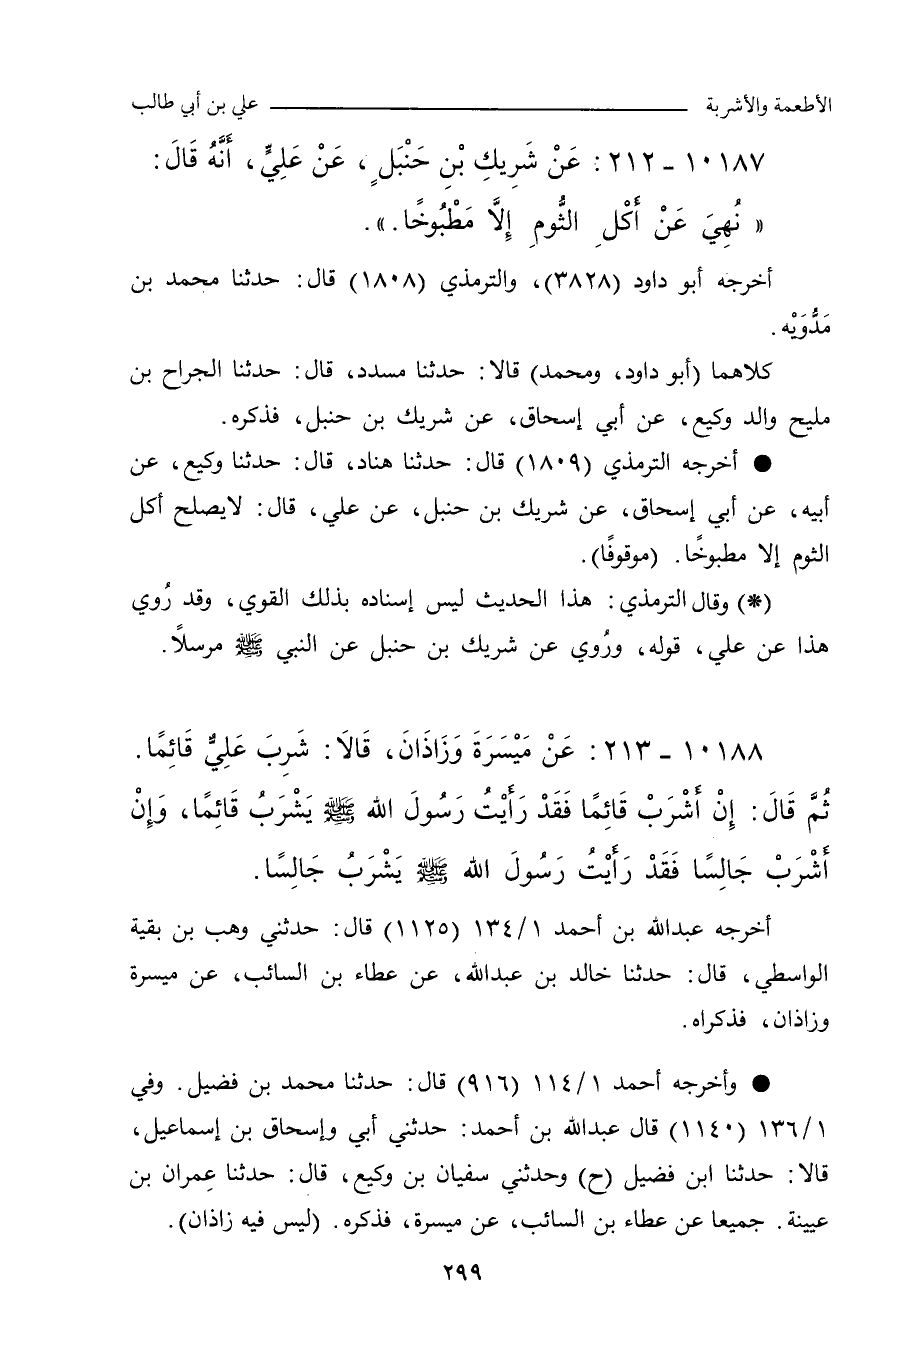 الأطعمة والأشربة ــــــــ علي بن أبي طالب
١٠١٨٧ ـ ٢١٢ : عَنْ شَرِيكِ بْنِ حَنْبَلٍ ، عَنْ عَلِيٍّ ، أَنَّهُ قَالَ :
« نُهِيَ عَنْ أَكْلِ الثُّومِ إِلَّا مَطْبُوخًا . » .
أخرجه أبو داود (٣٨٢٨)، والترمذي (١٨٠٨) قال: حدثنا محمد بن
مَدُّوَيْه .
كلاهما (أبو داود، ومحمد) قالا: حدثنا مسدد، قال: حدثنا الجراح بن
مليح والد وكيع، عن أبي إسحاق، عن شريك بن حنبل، فذكره.
● أخرجه الترمذي (١٨٠٩) قال: حدثنا هناد، قال: حدثنا وكيع، عن
أبيه، عن أبي إسحاق، عن شريك بن حنبل، عن علي، قال: لايصلح أكل
الثوم إلا مطبوخًا. (موقوفًا).
(*) وقال الترمذي: هذا الحديث ليس إسناده بذلك القوي، وقد رُوي
هذا عن علي، قوله، ورُوي عن شريك بن حنبل عن النبي ﷺ مرسلاً.
١٠١٨٨ ـ ٢١٣ : عَنْ مَيْسَرَةَ وَزَاذَانَ، قَالَا: شَرِبَ عَلِيٌّ قَائِمًا.
ثُمَّ قَالَ: إِنْ أَشْرَبْ قَائِمًا فَقَدْ رَأَيْتُ رَسُولَ الله ﷺ يَشْرَبُ قَائِمًا، وَإِنْ
أَشْرَبْ جَالِسًا فَقَدْ رَأَيْتُ رَسُولَ الله ﷺ يَشْرَبُ جَالِسًا.
أخرجه عبدالله بن أحمد ١/١٣٤ (١١٢٥) قال: حدثني وهب بن بقية
الواسطي، قال: حدثنا خالد بن عبدالله، عن عطاء بن السائب، عن ميسرة
وزاذان، فذكراه.
● وأخرجه أحمد ١/١١٤ (٩١٦) قال: حدثنا محمد بن فضيل. وفي
١/١٣٦ (١١٤٠) قال عبدالله بن أحمد: حدثني أبي وإسحاق بن إسماعيل،
قالا: حدثنا ابن فضيل (ح) وحدثني سفيان بن وكيع، قال: حدثنا عمران بن
عيينة. جميعا عن عطاء بن السائب، عن ميسرة، فذكره. (ليس فيه زاذان).
٢٩٩